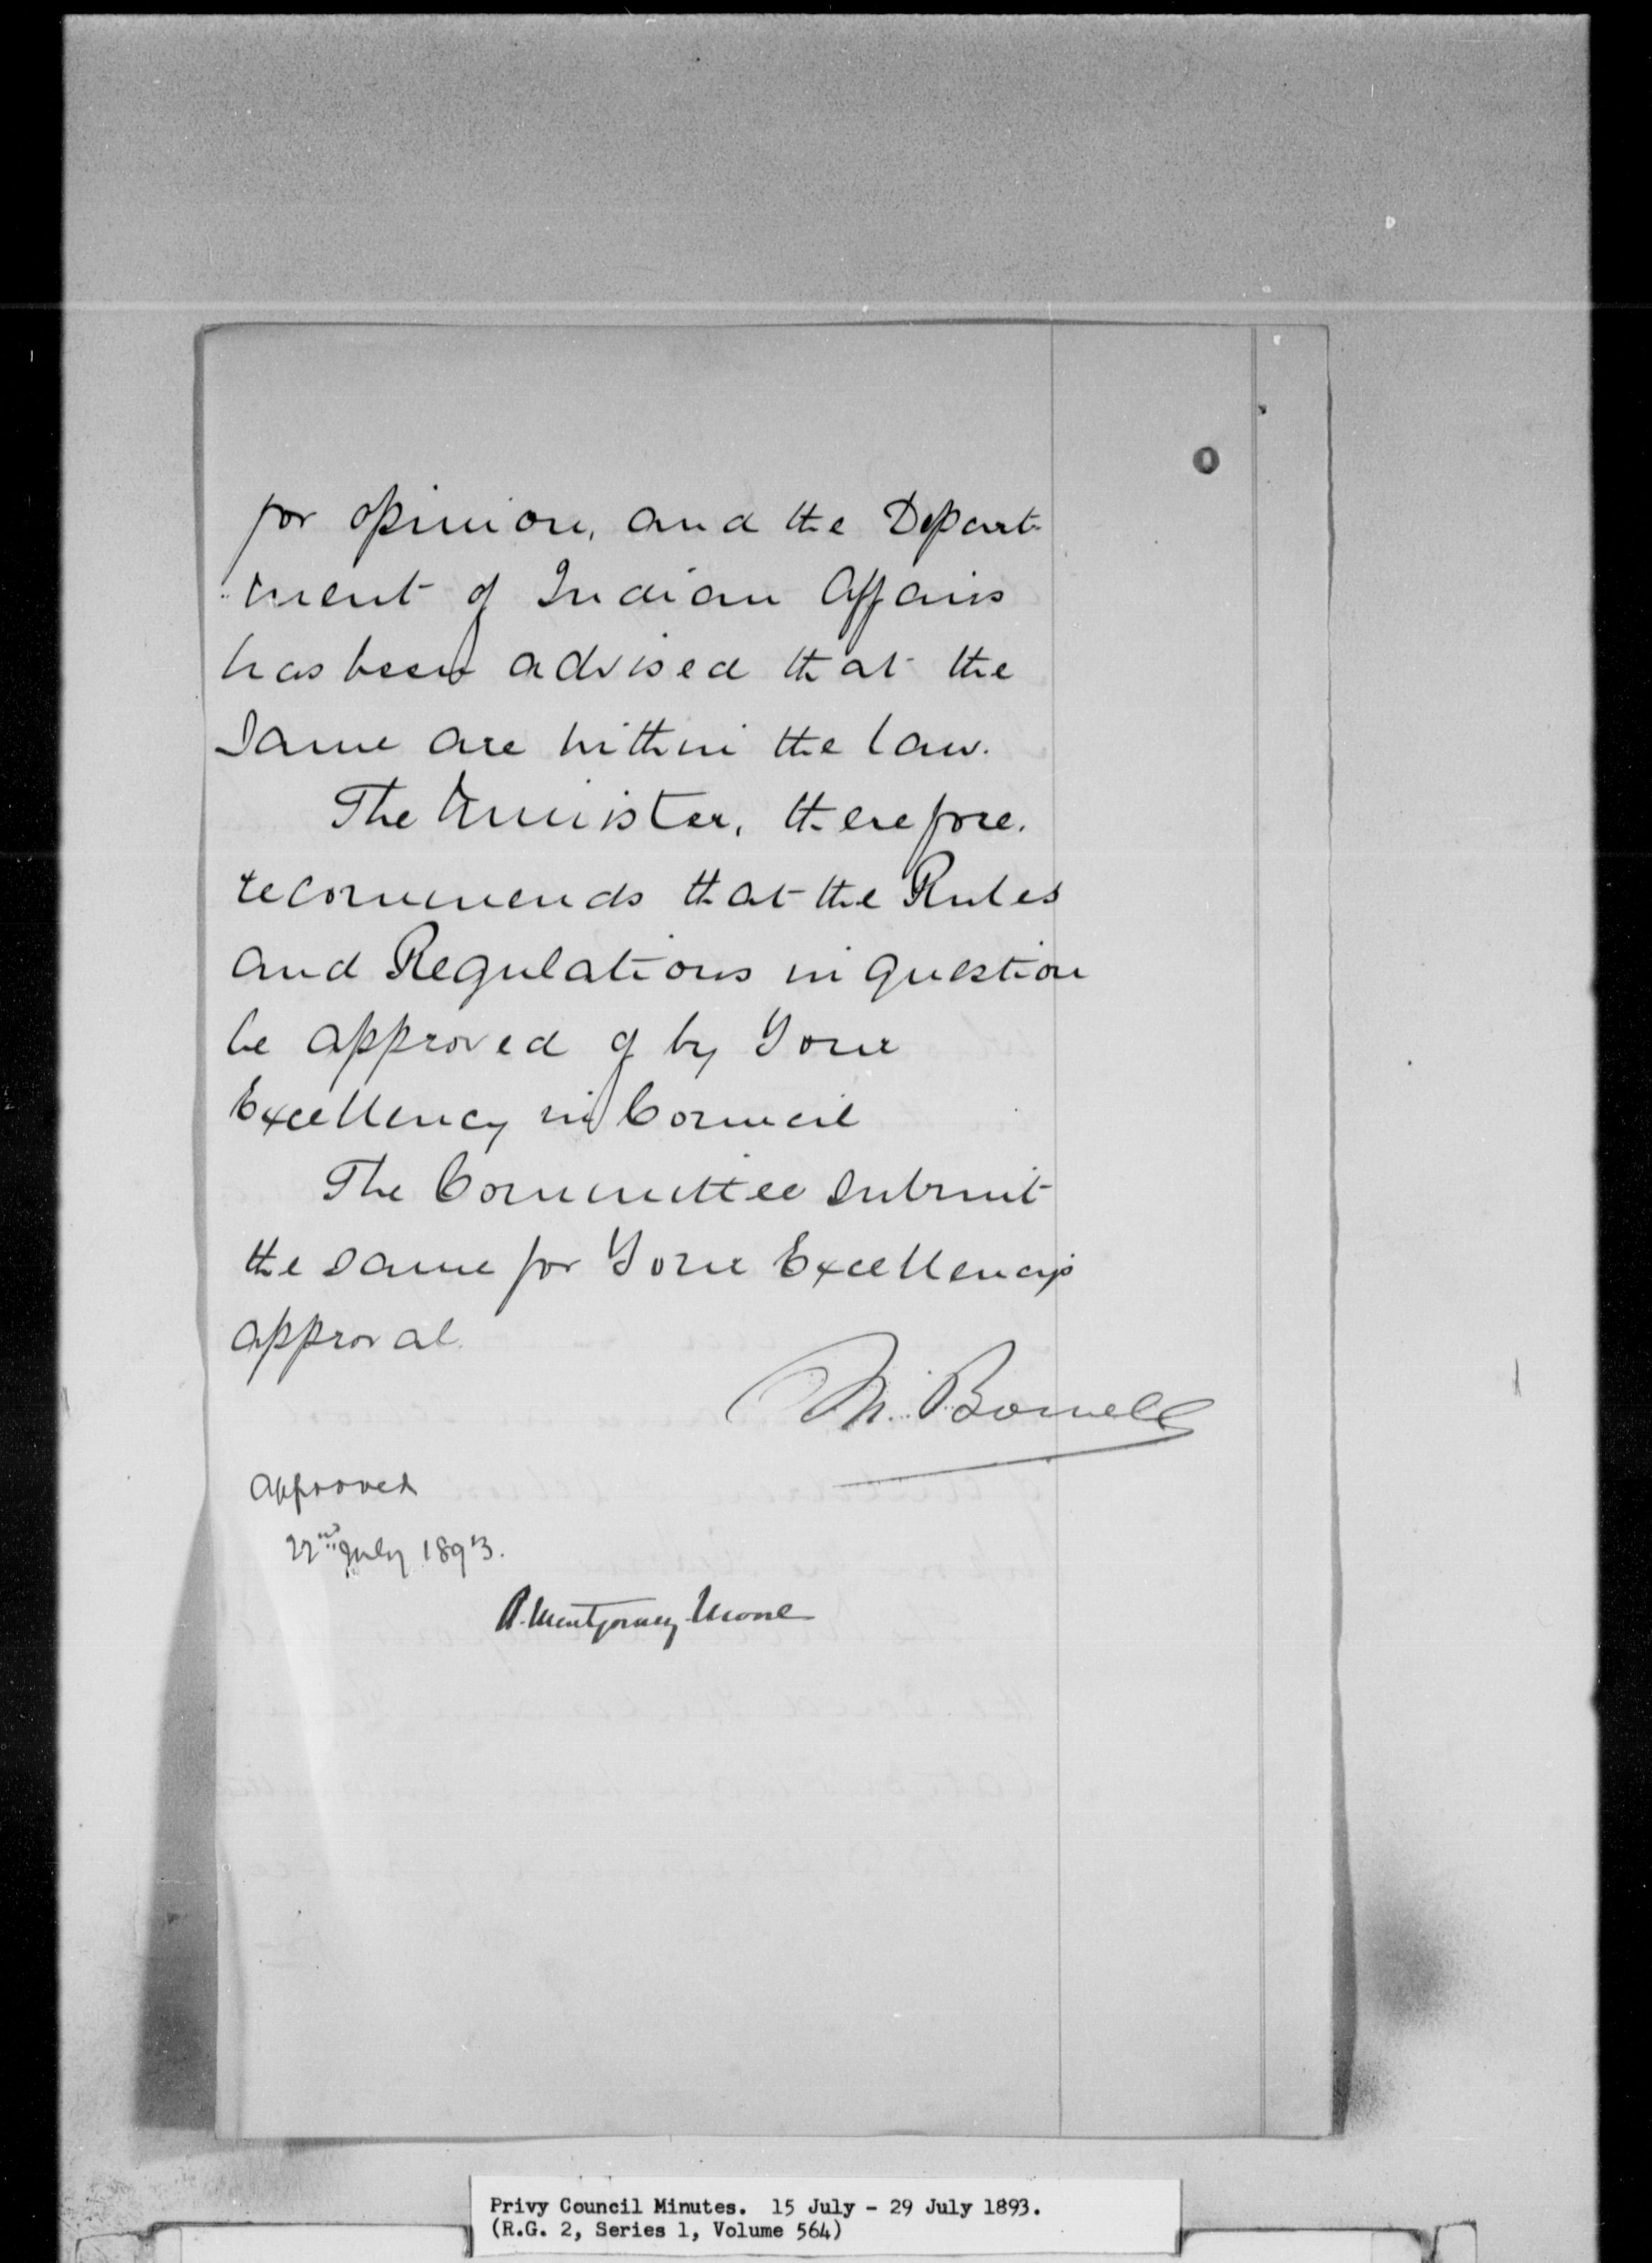 for opinion, and the Depart-
ment of Indian Affairs
has been advised that the
same are within the law.
The Minister, therefore,
recommends that the Rules
and Regulations in question
be approved of by Your
Excellency in Council
The Committee submit
the same for Your Excellency's
approval.
M. Bowell
Approved
22nd July 1893.
A. Montgomery Moore
Privy Council Minutes. 15 July - 29 July 1893.
(R.G. 2, Series 1, Volume 564)